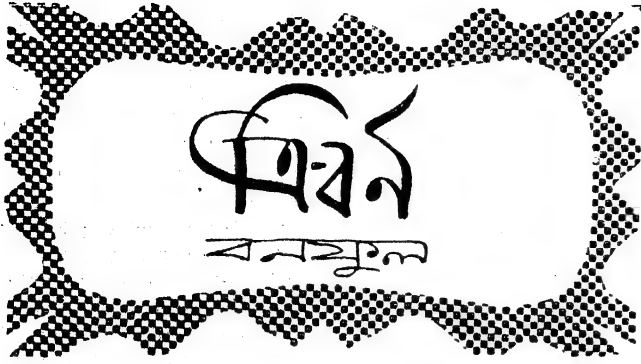 ত্রি-বর্ণ
বনফুল